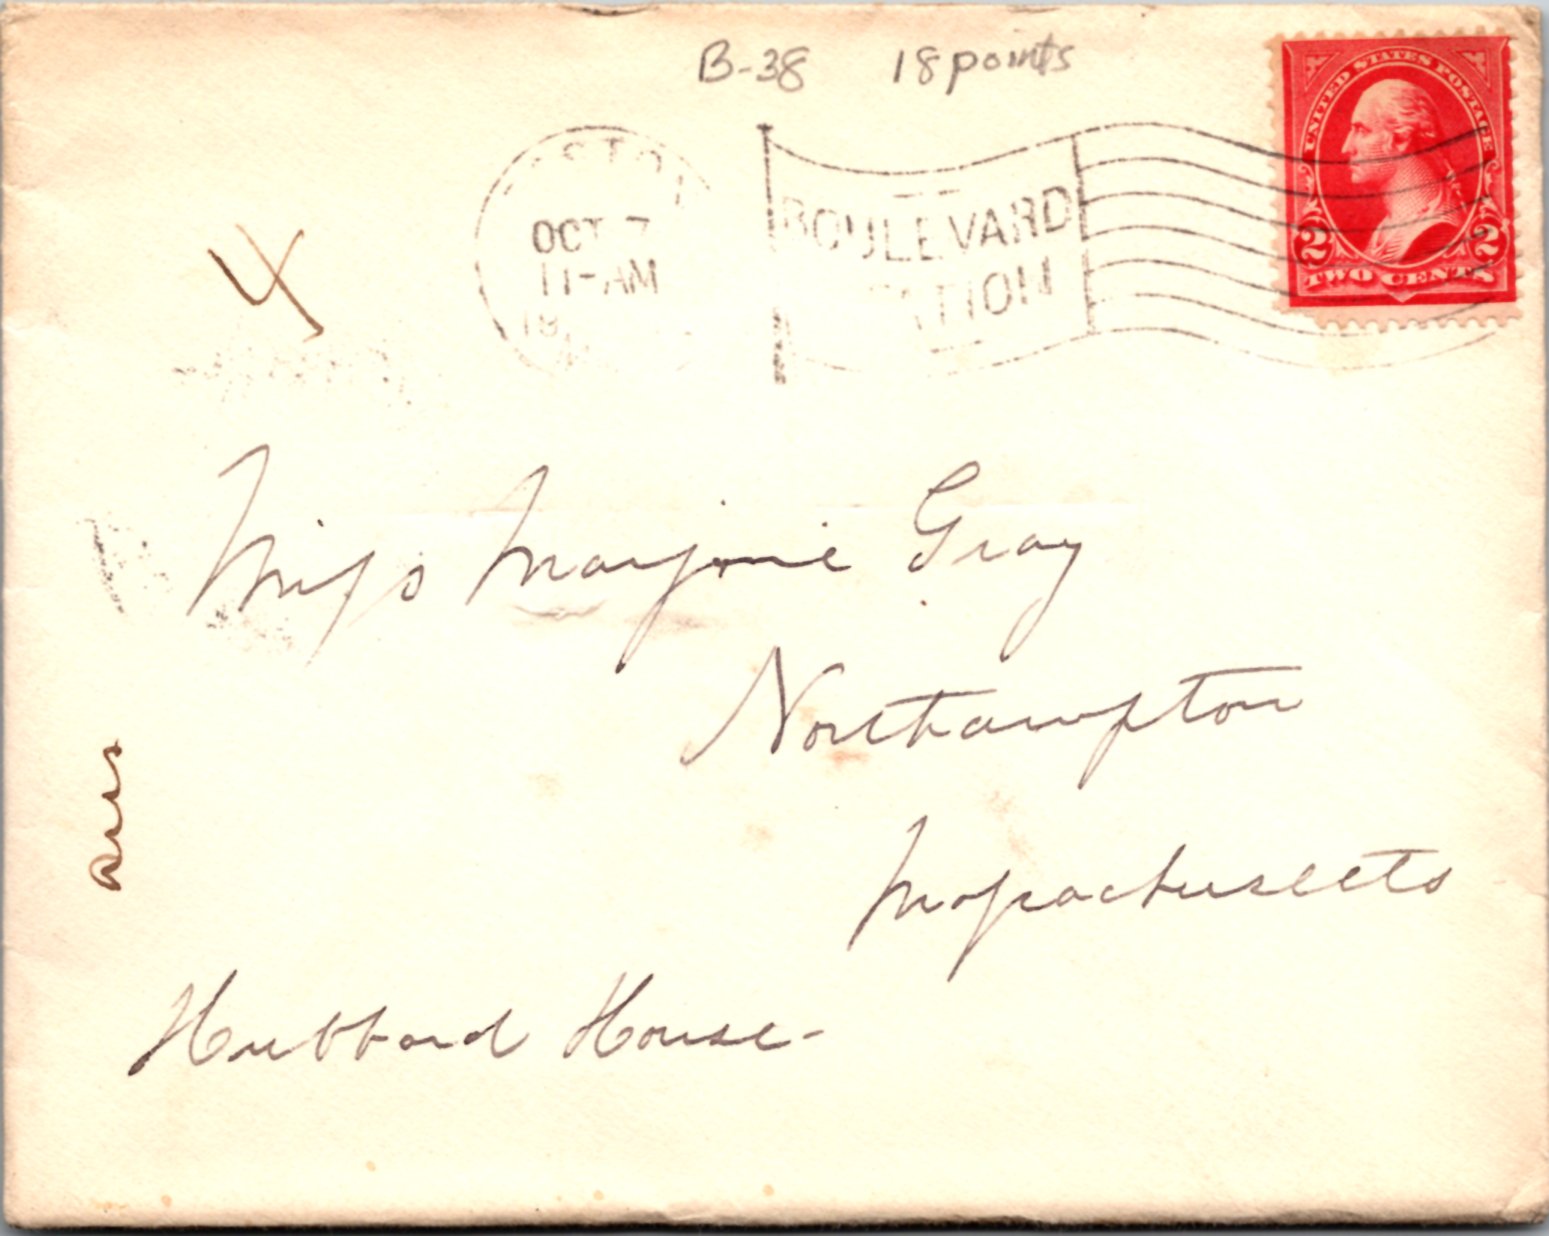 B-38 18 points
UNITED STATES POSTAGE
2 2
TWO CENTS
OCT 7
11-AM
BOULEVARD
4
Miss Marjorie Gray
Northampton
Massachusetts
ans
Hubbard House-